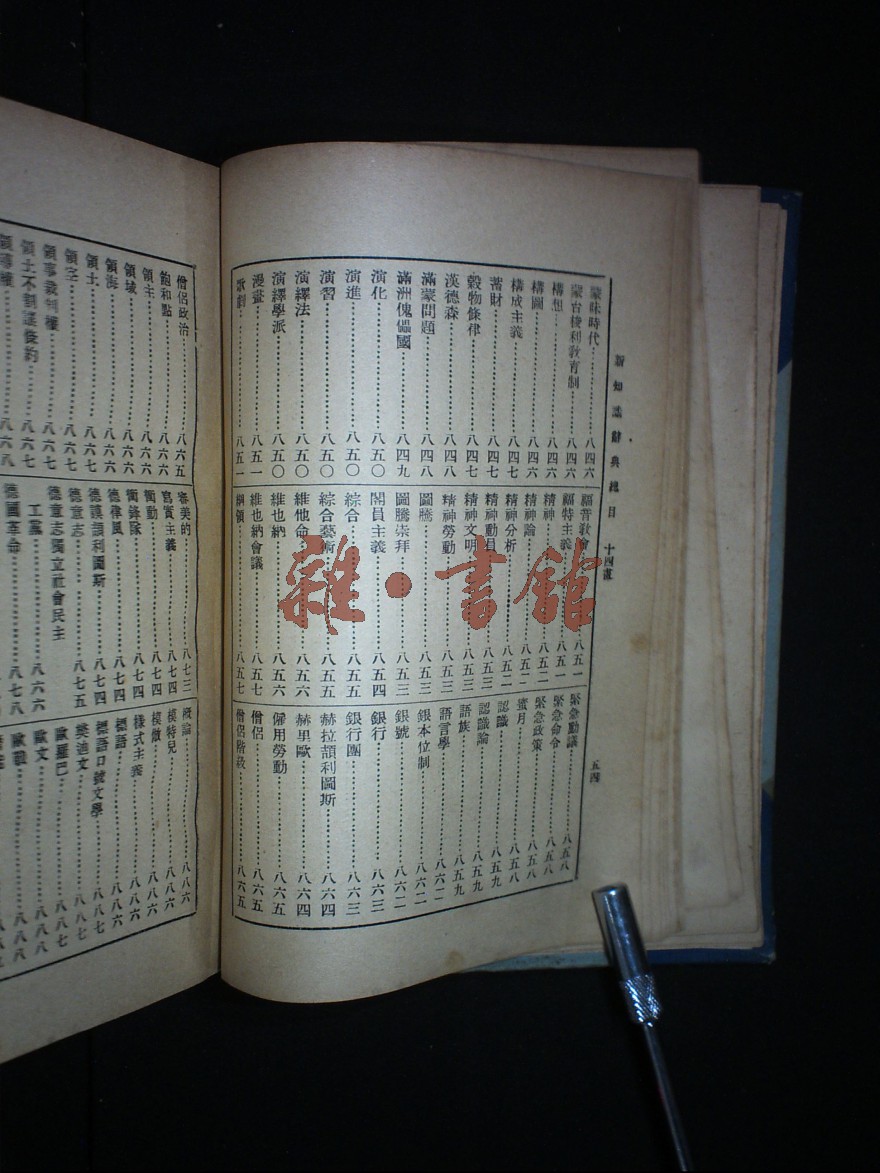 新知識辭典總目 十四畫 五四
蒙昧時代 八四六
蒙台梭利教育制 八四六
構想 八四六
構圖 八四六
構成主義 八四七
蓄財 八四七
穀物條律 八四七
漢德森 八四八
滿蒙問題 八四八
滿洲傀儡國 八四九
演化 八五〇
演進 八五〇
演習 八五〇
演繹法 八五〇
演繹學派 八五〇
漫畫 八五一
歌劇 八五一
福音教會 八五一
福特主義 八五一
精神 八五二
精神論 八五二
精神分析 八五二
精神動員 八五三
精神文明 八五三
精神勞動 八五三
圖騰 八五三
圖騰崇拜 八五三
閣員主義 八五四
綜合 八五五
綜合藝術 八五五
維他命 八五六
維也納 八五六
維也納會議 八五七
綱領 八五七
緊急動議 八五八
緊急命令 八五八
緊急政策 八五八
蜜月 八五八
認識 八五九
認識論 八五九
語族 八五九
語言學 八六二
銀本位制 八六二
銀號 八六二
銀行 八六三
銀行團 八六三
赫拉頡利圖斯 八六四
赫里歐 八六四
僱用勞動 八六五
僧侶 八六五
僧侶階段 八六五
僧侶政治 八六五
飽和點 八六六
領主 八六六
領域 八六六
領海 八六六
領土 八六七
領空 八六七
領事裁判權 八六七
領土不割讓條約 八六七
領導權 八六八
審美的 八七三
寫實主義 八七四
衝動 八七四
衝鋒隊 八七四
德律風 八七四
德謨頡利圖斯 八七五
德意志
德意志獨立社會民主
工黨 八六六
德國革命 八七八
概論 八八六
模特兒 八八六
模倣 八八六
樣式主義 八八六
標語 八八六
標語口號文學 八八七
樊迪文 八八七
歐羅巴 八八七
歐文 八八八
歐戰 八八八
雜·書館